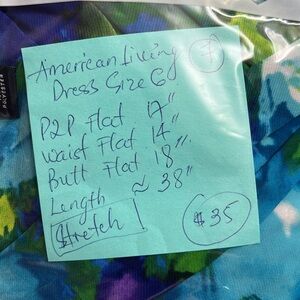 American Living 7
Dress Size 6
P2P Flat 17"
Waist Flat 14"
Butt Flat 18"
Length ≈ 38"
Stretch!
$35
POLYESTER